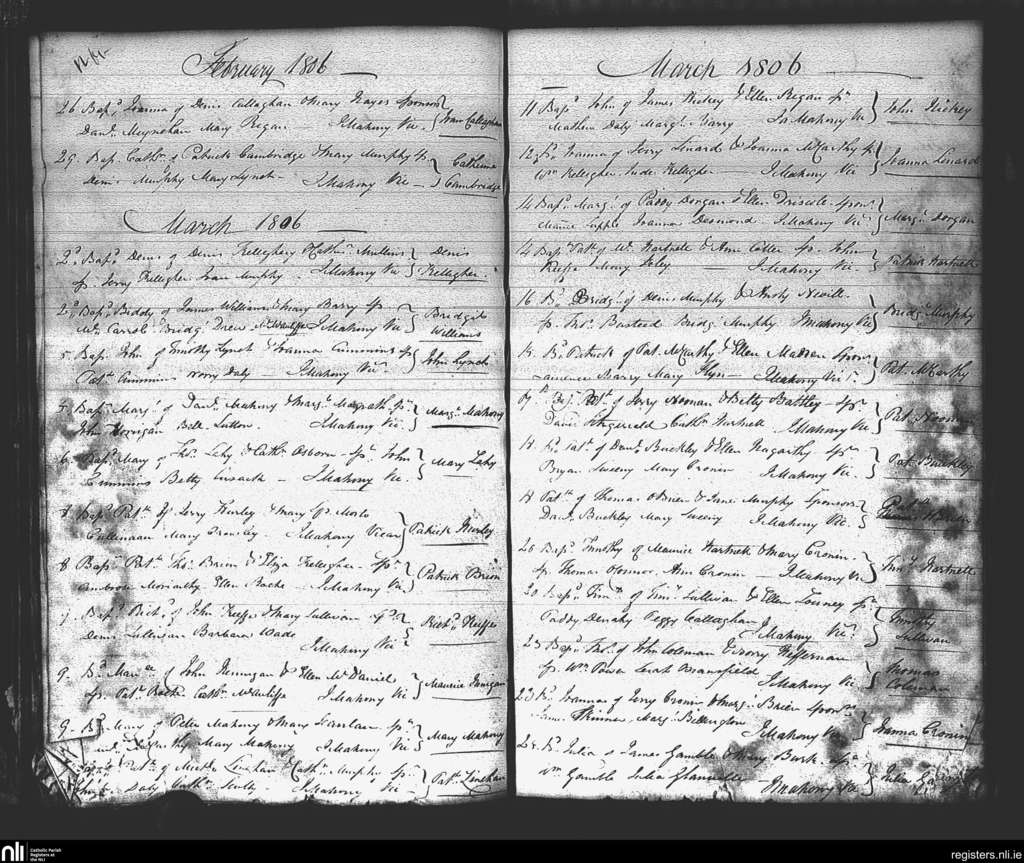 February 1806
26 Bapd. Joanna of Denis Callaghan & Mary Hayes Sponsors
Danl. Moynehan Mary Regan — J Mahony Vic.
Joan Callaghan
29. Bap. Cath. of Patrick Cambridge & Mary Murphy Sp.
Denis Murphy Mary Lynch — J Mahony Vic —
Catherine
Cambridge
March 1806
2d. Bapd. Denis of Denis Kellegher & Cathn. Mullins
Sp. Jerry Kellegher Joan Murphy. J Mahony Vic
Denis
Kellegher.
2d. Bapd. Biddy of James Williams & Mary Barry Sp.
Wm. Carrol Bridg. Drew J Mahony Vic
Bridgit
Williams
5. Bapd. John of Timothy Lynch & Joanna Cummins Sp
Patk. Cummins Norry Daly J Mahony Vic.
John Lynch
5. Bapd. Margt. of Danl. Mahony & Margt. Magrath Sp.
John Horrigan Bell Sutton. J Mahony Vic.
Margt. Mahony
6. Bapd. Mary of Thos. Lahy & Cath. Osborn — Sp. John
Cummins Betty Cusack — J Mahony Vic.
Mary Lahy
8 Bapd. Patk. of Jerry Hurley & Mary Sp. Morto
Cullinaan Mary J Mahony Vicar
Patrick Hurley
8 Bapd. Patk. Thos. Brien & Eliza Kellegher — Sp.
Ambrose Moriarthy Ellen Roche — J Mahony Vic
Patrick Brien
Bapd. Richd. of John Keeffe & Mary Sullivan Sp.
Denis Sullivan Barbara Wade
J Mahony Vic
Richd. Keeffe
9. Bd. of John Finnigan & Ellen McDaniel
Sp. Patk. Roche Cathn. McAuliffe J Mahony Vic
Maurice Finigan
9. Bd. Mary of Peter Mahony & Mary Scanlan Sp.
Mary Mahony J Mahony Vic
Mary Mahony
Patk. of Michl. Linehan & Cathn. Murphy Sp.
Daly Cathn. Scully — J Mahony Vic —
Patk. Linehan
March 1806
11 Bapd. John of James Hickey & Ellen Regan Sp.
Mathew Daly Margt. Varry Js Mahony Vic
John Hickey
12 Bd. Joanna of Jerry Linard & Joanna McCarthy Sp
Wm. Kellegher Jude Kellegher — J Mahony Vic
Joanna Linard
14 Bapd. Margt. of Paddy Dorgan & Ellen Driscole Spons.
Supple Joanna Desmond J Mahony Vic
Margt. Dorgan
14 Bapd. Patk. of Wm. Hartnett & Ann Sp. John
Keeffe Mary Foley — J Mahony Vic
Patrick Hartnett
16 Bd. Bridgt. of Denis Murphy & Neville
Sp. Thos. Busteed Bridg. Murphy J Mahony Vic
Bridgt. Murphy
Bd. Patrick of Pat. McCarthy & Ellen Madden Spons
Laurence Barry Mary Flyn — J Mahony Vic
Pat. McCarthy
Patk. of Jerry Noonan & Betty Battley — Sp.
David Fitzgerald Cathn. Hartnett J Mahony Vic
Patk. Noonan
Bd. Patk. of Danl. Buckley & Ellen Sps.
Bryan Sweeny Mary Cronin J Mahony Vic.
Patk. Buckley
Patk. of Thomas OBrien & Jane Murphy Sponsors
Danl. Buckley Mary Sweeny J Mahony Vic.
Patk.
20 Bapd. Timothy of Maurice Hartnett & Mary Cronin.
Sp. Thomas OConnor Ann Cronin — J Mahony Vic
Timy. Hartnett
20 Bapd. Timy. of Timy. Sullivan & Ellen Sp.
Paddy Denahy Peggy Callaghan J Mahony Vic.
Timothy
Sullivan
23 Bapd. Thos. of John Coleman & Norry Heffernan
Sp. Wm. Power Bransfield J Mahony Vic
Thomas
Coleman
23 Bd. Joanna of Jerry Cronin & Margt. Brien Sponsrs
James Skinner Margt. Bellington J Mahony Vic
Joanna Cronin
Bd. Julia of James Gamble & Mary Burk. Sp.
Wm. Gamble Julia J Mahony Vic
Julia
nli
Catholic Parish
Registers at
the NLI
registers.nli.ie